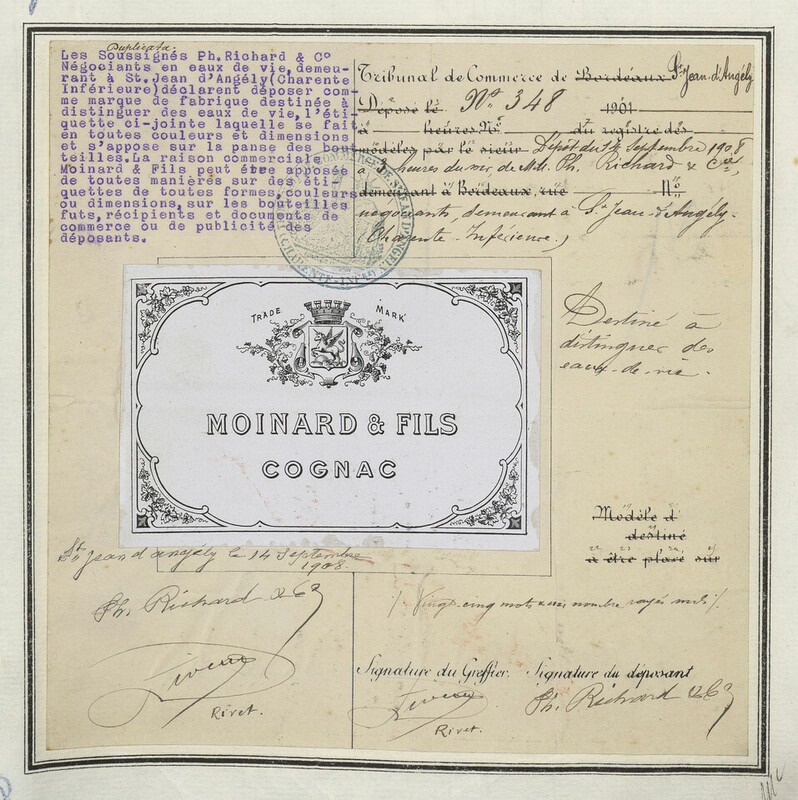 Duplicata.
Les Soussignés Ph.Richard & Cº
Négociants en eaux de vie,demeu-
rant à St.Jean d'Angély(Charente
Inférieure)déclarent déposer com-
me marque de fabrique destinée à
distinguer des eaux de vie,l'éti-
quette ci-jointe laquelle se fait
en toutes couleurs et dimensions
et s'appose sur la panse des bou-
teilles.La raison commerciale
Moinard & Fils peut être apposée
de toutes manières sur des éti-
quettes de toutes formes,couleurs
ou dimensions,sur les bouteilles
futs,récipients et documents de
commerce ou de publicité des
déposants.
Tribunal de Commerce de Bordeaux St Jean-d'Angély
Déposé le Nº 348 1901
à heures Nº. du registre des
modèles par le sieur Dépôt du 14 Septembre 1908
à 3 heures du soir, de MM. Ph. Richard & Cie,
demeurant à Bordeaux, rue Nº
négociants, demeurant à St Jean-d'Angély-
Charente-Inférieure,
TRADE MARK
MOINARD & FILS
COGNAC
Destiné à
distinguer des
eaux-de-vie.
Modèle d
destiné
à être placé sur
St Jean d'angély le 14 Septembre
1908.
Ph. Richard & Cº
Rivet.
Vingt-cinq mots & un nombre rayés nuls
Signature du Greffier. Signature du déposant
Ph. Richard & Cº
Rivet.